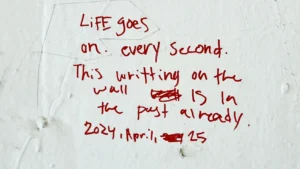 LIFE goes
on. every second.
This writting on the
wall IS In
the past already.
2024, April, 25